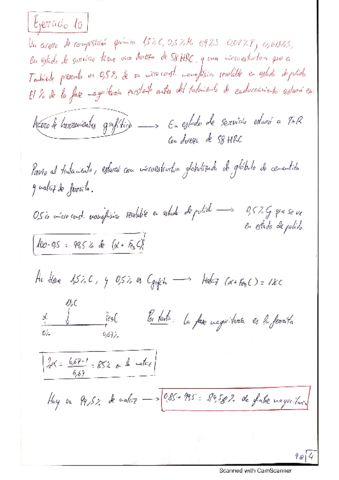 Ejercicio 10
Un acero de composición química 1,5%C, 0,5%Mn
En estado de servicio tiene una dureza de 58 HRC, y una microestructura que a
Tambiente presenta un 0,5% de un microconst. monofásico revelable en estado de pulido
El % de la fase mayoritaria existente antes del tratamiento de endurecimiento estará en:
Acero de herramientas grafítico → En estado de servicio estará a TaR
con dureza de 58 HRC
Previo al tratamiento, estará con microestructura globulizada de glóbulos de cementita
y matriz de ferrita.
0,5% microconst. monofásico revelable en estado de pulido → 0,5% G que se ve
en estado de pulido.
100-0,5 = 99,5% de (α + Fe3C)
Au tiene 1,5%C, y 0,5% es Cgrafito → Matriz (α+Fe3C) = 1%C
1%C
α Fe3C
0% 6,67%
Por tanto: La fase mayoritaria es la ferrita
%α = 6,67-1 / 6,67 = 85% en la matriz
Hay un 99,5% de matriz → 0,85 · 99,5 = 84,58% de fase mayoritaria
4
Scanned with CamScanner